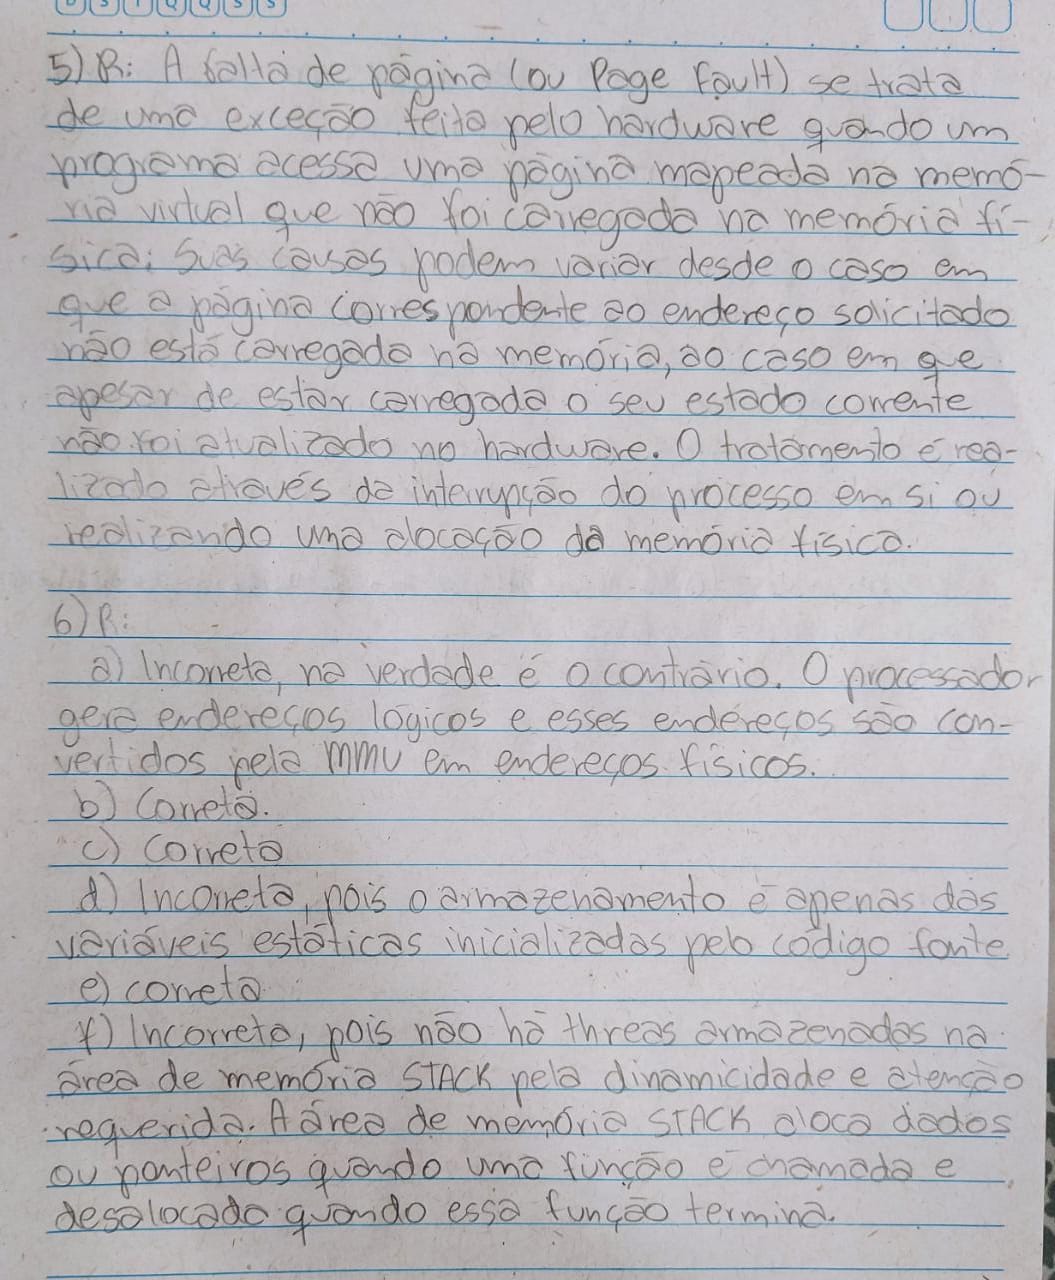 D S T Q Q S S
5) R: A falta de página (ou Page Fault) se trata
de uma exceção feita pelo hardware quando um
programa acessa uma página mapeada na memó-
ria virtual que não foi carregada na memória fí-
sica. Suas causas podem variar desde o caso em
que a página correspondente ao endereço solicitado
não está carregada na memória, ao caso em que
apesar de estar carregada o seu estado corrente
não foi atualizado no hardware. O tratamento é rea-
lizado através da interrupção do processo em si ou
realizando uma alocação da memória física.
6) R:
a) Incorreta, na verdade é o contrário. O processador
gera endereços lógicos e esses endereços são con-
vertidos pela MMU em endereços físicos.
b) Correta.
c) Correta
d) Incorreta, pois o armazenamento é apenas das
variáveis estáticas inicializadas pelo código fonte
e) correta
f) Incorreta, pois não há threas armazenadas na
área de memória STACK pela dinamicidade e atenção
requerida. A área de memória STACK aloca dados
ou ponteiros quando uma função é chamada e
desalocada quando essa função termina.